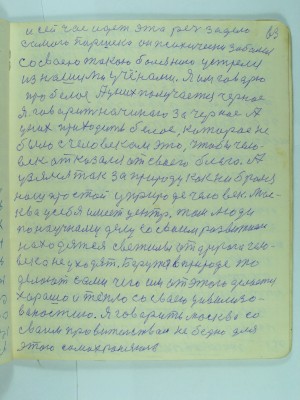 и сейчас идет эта реч за дело 63
самого Паршека он психически заболел
со своею такою болезнию устрели
из нашими учёнами. Я им говорю
про белое. А у них получается черное
Я говорить начинаю за черное. А
у них приходить белое, которое не
было с человеком это, чтобы чело-
век отказался от своего благо. А
взялися так за природу как
наш простой у природе человек. Мос-
ква у себя имеет центр, там люди
по научному делу со своим развитием
находятся светила и от другого чело-
века не уходят. Берутся в природе то
делают сами чего им от этого делается
хорошо и тепло со своею цивилизо-
ваностию. Я говорить москвы со
своим правительствам не бедно для
этого самохранения